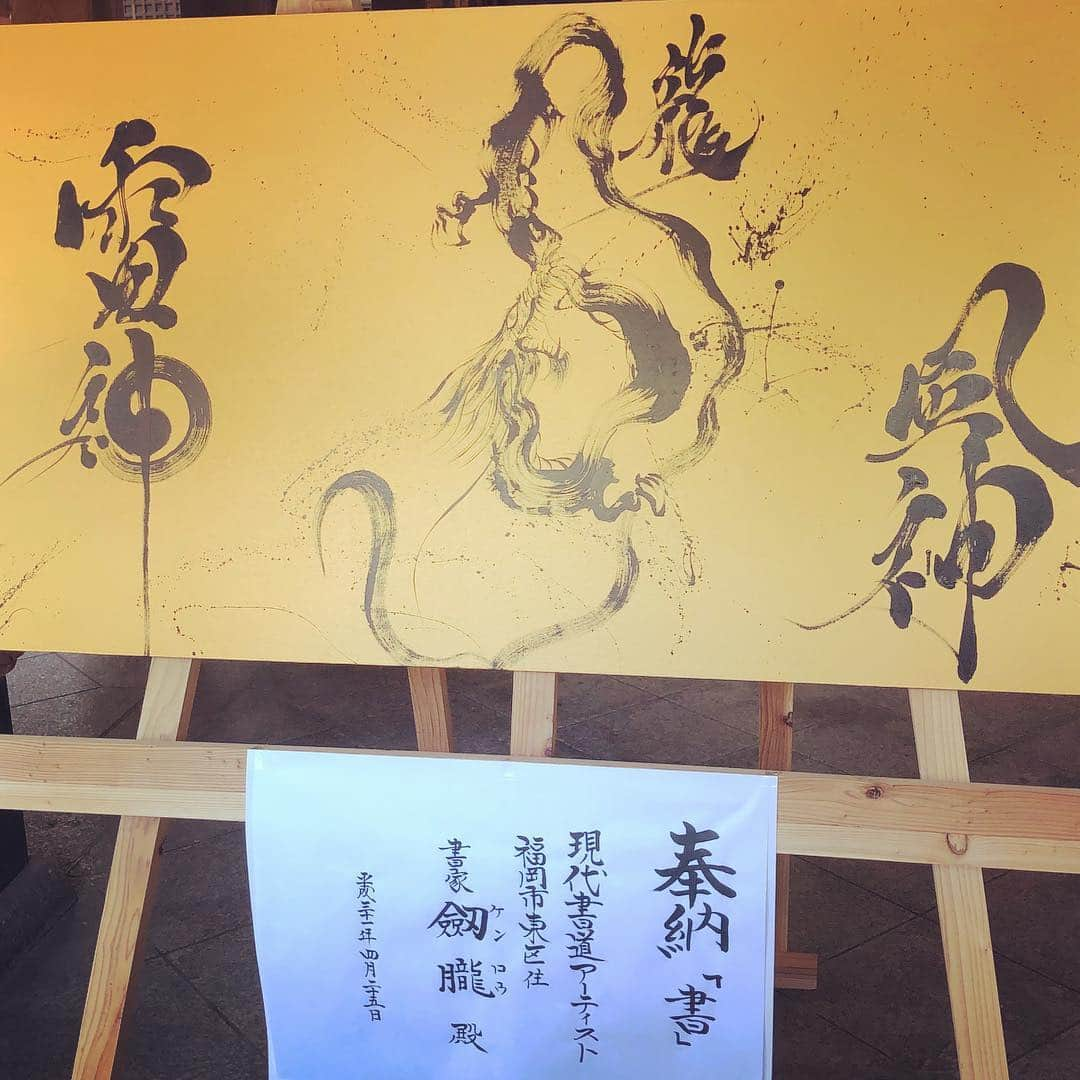 風神
龍
雷神
奉納「書」
現代書道アーティスト
福岡市東区住
書家 劔朧殿
ケンロウ
平成三十一年四月二十五日